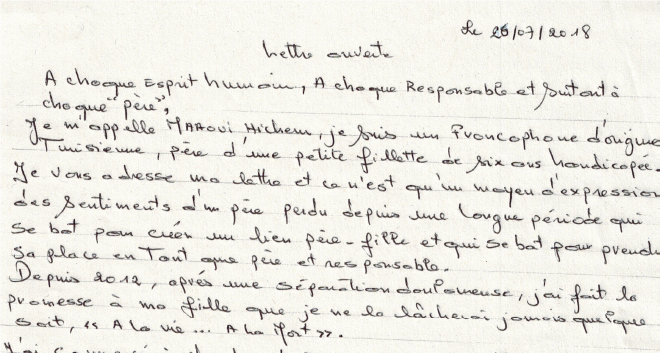 Le 26/07/2018
Lettre ouverte
A chaque Esprit humain, A chaque Responsable et surtout à
chaque "père",
Je m'appelle MAAOUI Hichem, je suis un Francophone d'origine
Tunisienne, père d'une petite fillette de six ans handicapée.
Je vous adresse ma lettre et ce n'est qu'un moyen d'expression
des sentiments d'un père perdu depuis une longue période qui
se bat pour créer un lien père-fille et qui se bat pour prendre
sa place en Tant que père et responsable.
Depuis 2012, après une séparation douloureuse, j'ai fait la
promesse à ma fille que je ne la lâcherai jamais quelque
soit, « A la vie... A la Mort ».